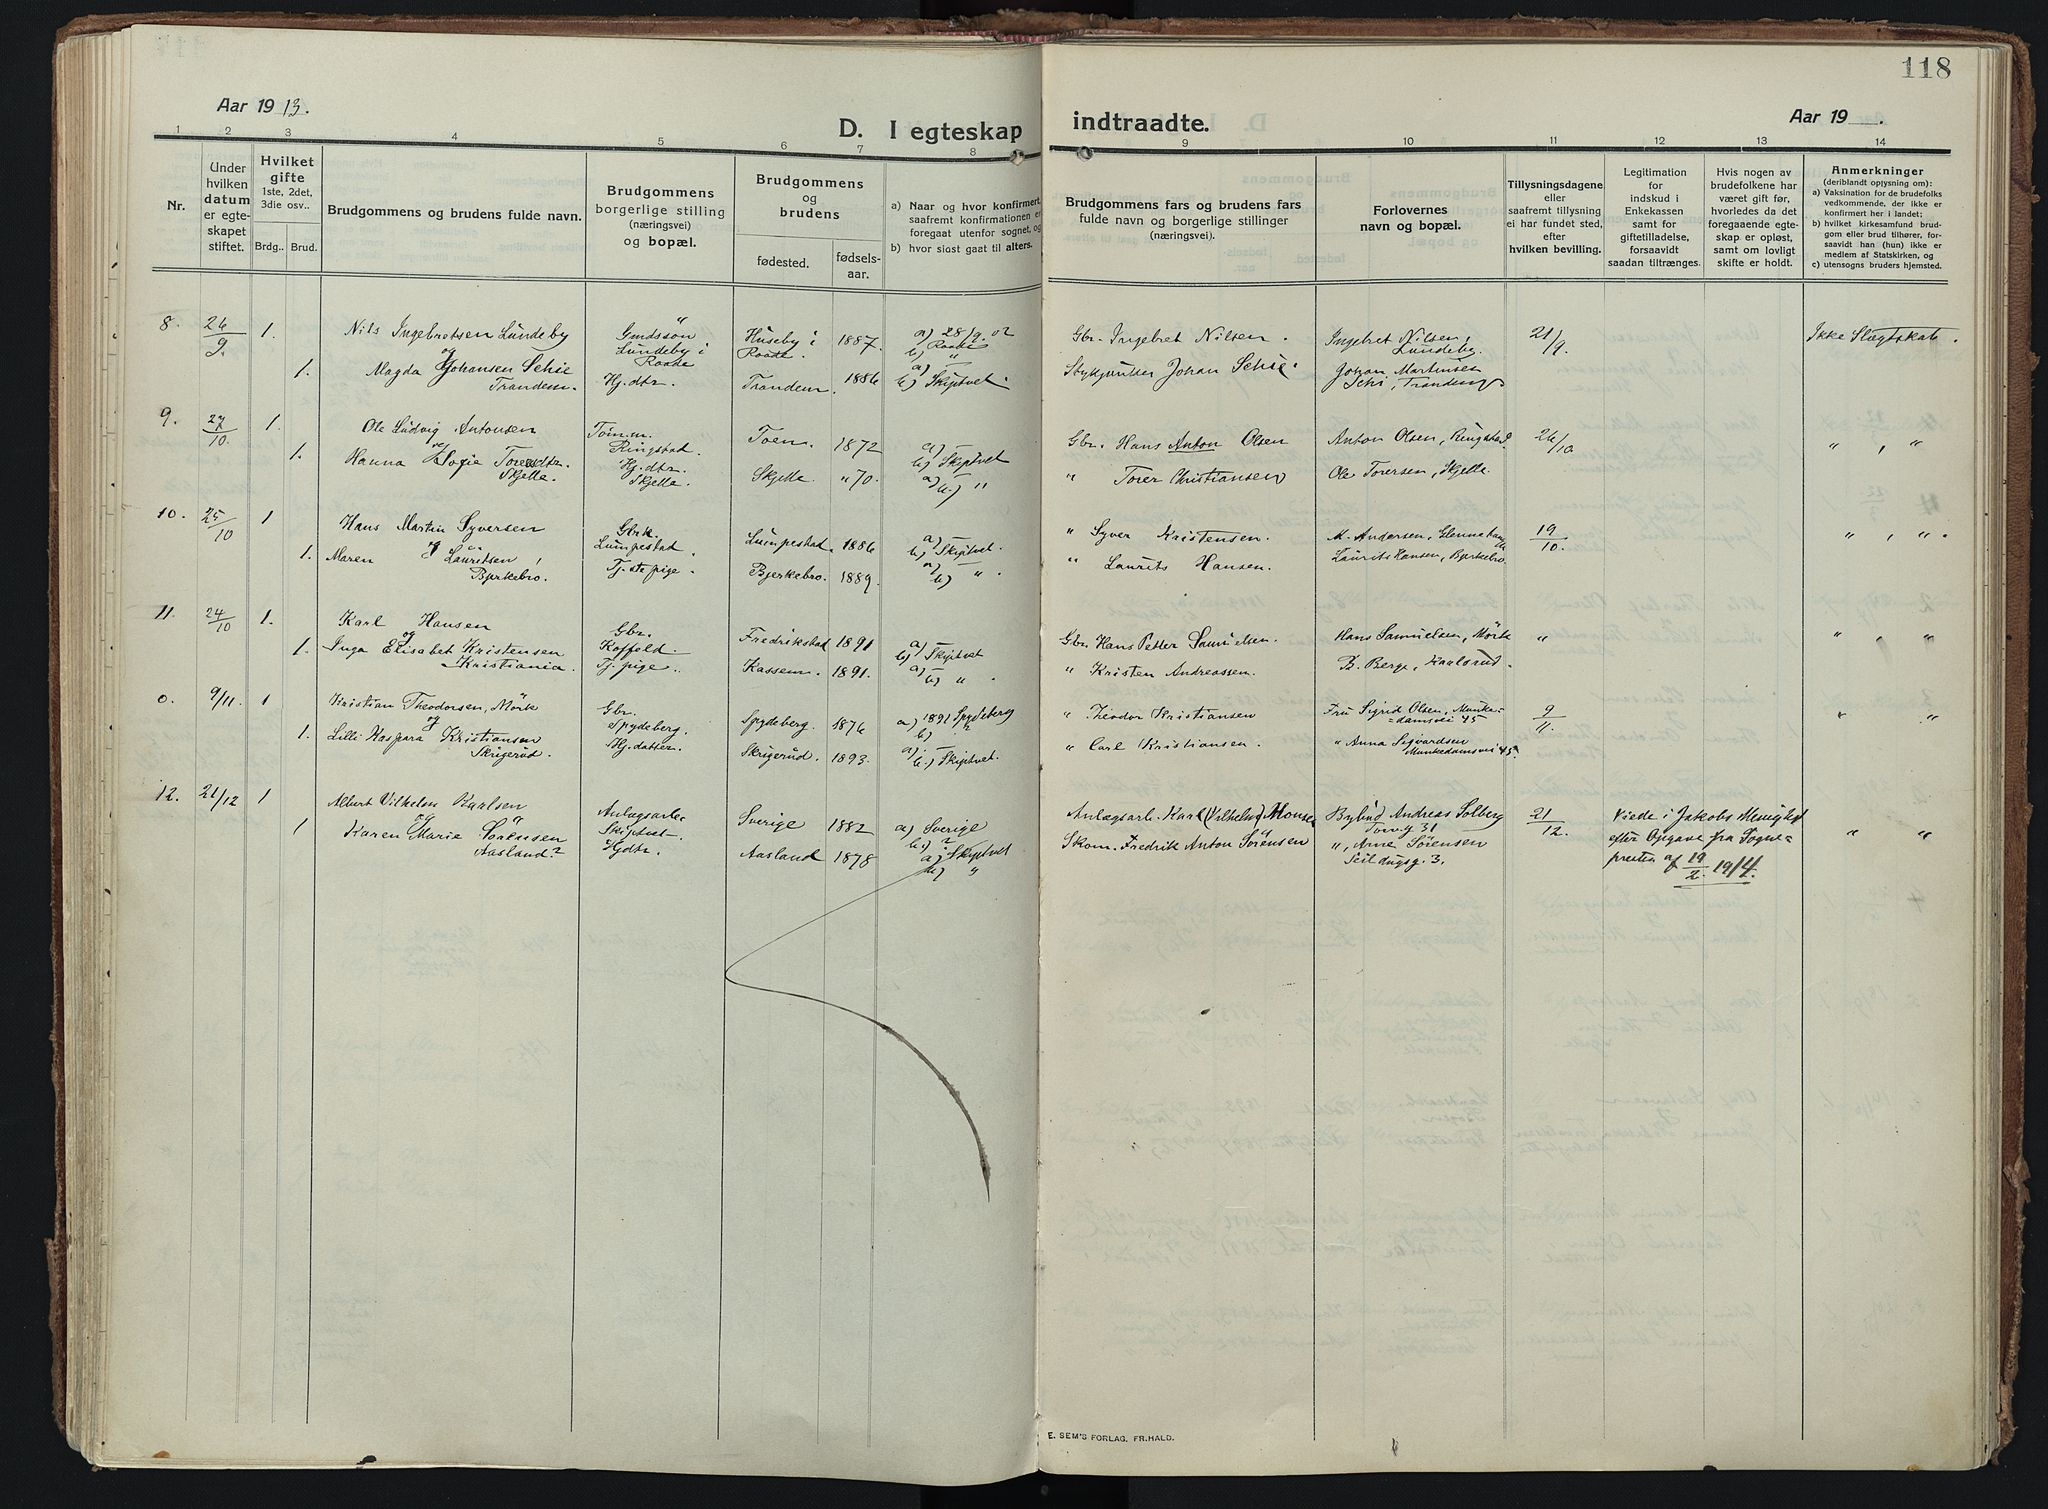 118
Aar 1913.
D. I egteskap
indtraadte.
Aar 19 .
1 2 3 4 5 6 7 8 9 10 11 12 13 14
Nr.
Under
hvilken
datum
er egte-
skapet
stiftet.
Hvilket
gifte
1ste, 2det,
3die osv..
Brdg.. Brud.
Brudgommens og brudens fulde navn.
Brudgommens
borgerlige stilling
(næringsvei)
og bopæl.
Brudgommens
og
brudens
fødested.
fødsels-
aar.
a) Naar og hvor konfirmert,
saafremt konfirmationen er
foregaat utenfor sognet, og
b) hvor sidst gaat til alters.
Brudgommens fars og brudens fars
fulde navn og borgerlige stillinger
(næringsvei).
Forlovernes
navn og bopæl.
Tillysningsdagene
eller
saafremt tillysning
ei har fundet sted,
efter
hvilken bevilling.
Legitimation
for
indskud i
Enkekassen
samt for
giftetilladelse,
forsaavidt
saadan tiltrænges.
Hvis nogen av
brudefolkene har
været gift før,
hvorledes da det
foregaaende egte-
skap er opløst,
samt om lovligt
skifte er holdt.
Anmerkninger
(deriblandt oplysning om):
a) Vaksination for de brudefolks
vedkommende, der ikke er
konfirmert her i landet;
b) hvilket kirkesamfund brud-
gom eller brud tilhører, for-
saavidt han (hun) ikke er
medlem af Statskirken, og
c) utensogns bruders hjemsted.
8. 26/9. 1. Nils Ingebretsen Lundeby
og
Gmdssøn
Lundeby i
Raade
Huseby i
Raade. 1887. a) 28/9. 02
b) Raade
Gbr. Ingebret Nilsen.
Ingebret Nilsen,
Lundeby.
21/9. Ikke Slegtskab.
1. Magda Johansen Schie
Trandem.
Hj. dtr. Trandem. 1886 a)
b) Skiptvet. "
Johan Schie.
Johan Martinsen
Schi, Trandem
9. 27/10. 1. Ole Ludvig Antonsen
og
Tøm.m.
Ringstad. Toen. 1872 a)
b) Skiptvet
Gbr. Hans Anton Olsen
Anton Olsen, Ringstad
26/10 " , "
1. Hanna Sofie Toresdtr.
Skjelle.
Hj. dtr.
Skjelle. Skjelle. " 70. a)
b) "
" Torer Christiansen
Ole Toresen, Skjelle.
10. 25/10 1 Hans Martin Syversen
og
Gbrk.
Lumpestad. Lumpestad. 1886 a)
b) Skiptvet.
" Syver Kristensen.
M. Andersen,
19/10. " , " .
1. Maren Lauritsen,
Bjerkebro.
Tj.ste pige. Bjerkebro. 1889. a)
b) "
" Laurits Hansen.
Laurits Hansen, Bjerkebro.
11. 24/10 1. Karl Hansen
og
Gbr.
Koffeld. Fredrikstad 1891 a)
b) Skiptvet
Gbr. Hans Petter Samuelsen.
Hans Samuelsen, Mörk
" " , "
1. Inga Elisabet Kristensen
Kristiania.
Tj. pige. Kassem. 1891. a)
b) " .
" Kristen Andreassen.
B. Berge, Karlsrud.
0. 9/11. 1 Kristian Theodorsen, Mörk
og
Gbr.
Spydeberg. Spydeberg. 1876 a) 1891 Spydeberg
b)
" Theodor Kristiansen
Fru Sigrid Olsen, Munke-
=damsvei 45
9/11. " "
1. Lilli Kaspara Kristiansen
Skrigerud.
Hj. datter. Skrigerud. 1893. a)
b) Skiptvet.
" Carl Kristiansen.
" Anna Sigvardsen
Munkedamsvei 45.
12. 21/12 1 Albert Vilhelm Karlsen
og
Anlægsarb.
Skiptvet. Sverige 1882 a) Sverige
b) ?
Anlægsarb. Karl (Vilhelm) Monsen
Bybud Andreas Solberg
Torvg 31
21/12. Viede i Jakobs Menighet
efter Opgave fra Sogne=
presten af 19/2. 1914.
" "
1 Karen Marie Sörensen
Aasland?
Hj dtr. Aasland 1878 a) Skiptvet
b) "
Skom. Fredrik Anton Sörensen
", Arne Sörensen
Seildugsg. 3.
E. SEM'S FORLAG. FR.HALD.